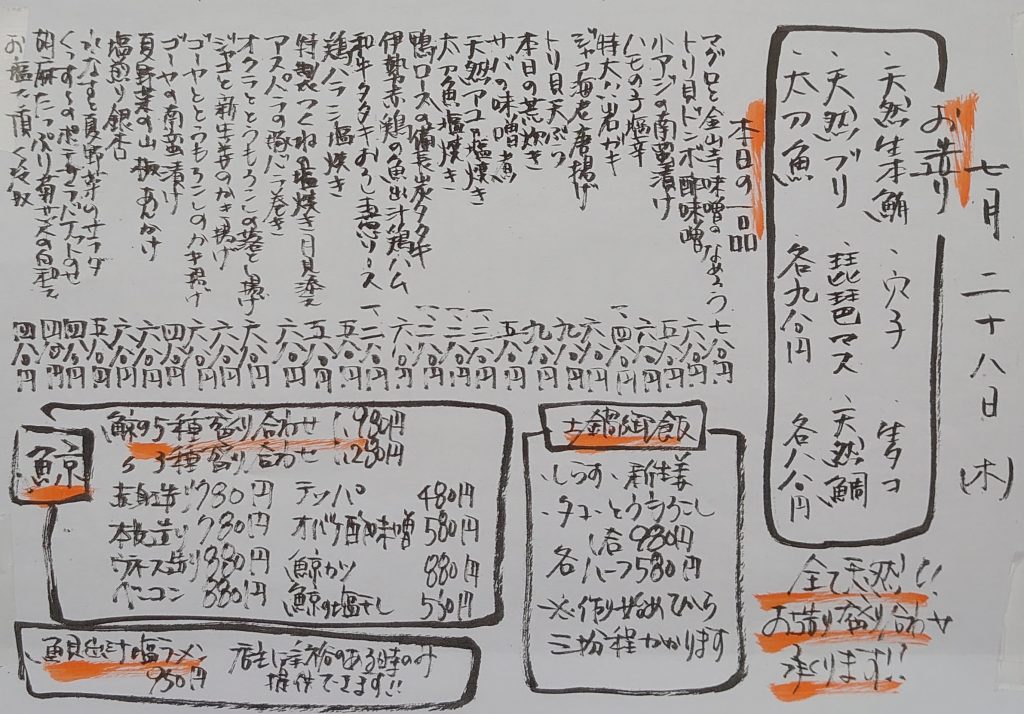 七月二十八日(木)
お造り
・天然生本鮪 ・穴子 ・生タコ
・天然ブリ ・琵琶マス ・天然鯛
・太刀魚 各九八〇円 各八八〇円
全て天然!!
お造り盛り合わせ
承ります!!
本日の一品
マグロと金山寺味噌のなめろう 七八〇円
トリ貝トンボ酢味噌 六八〇円
小アジの南蛮漬け 五八〇円
ハモの子塩辛 六八〇円
特大岩ガキ 一、四八〇円
ジャコ海老唐揚げ 六八〇円
トリ貝天ぷら 九八〇円
本日の煮炊き 九八〇円
サバの味噌煮 五八〇円
天然アユ塩焼き 一、三八〇円
太刀魚塩焼き 一、二八〇円
鴨ロースの備長炭タタキ 一、二八〇円
伊勢赤鶏の魚出汁鶏ハム 六八〇円
和牛タタキおろし
鶏ハラミ塩焼き 五八〇円
特製つくねの塩焼き月見添え 五八〇円
アスパラの豚バラ巻き 六八〇円
オクラととうもろこしの落とし揚げ 六八〇円
ジャコと新生姜のかき揚げ 六八〇円
ゴーヤととうもろこしのかき揚げ 六八〇円
ゴーヤの南蛮漬け 四八〇円
夏野菜の山椒あんかけ 六八〇円
塩煎り銀杏
水なすと夏野菜のサラダ
くんせいのポテサラバゲットのせ
胡麻たっぷり
お塩で頂く 四八〇円
鯨
鯨の5種盛り合わせ 1,980円
〃 3種盛り合わせ 1,280円
赤身造り 780円 テッパ 480円
本皮造り 780円 オバケ酢味噌 580円
ウネス造り 880円 鯨カツ 880円
ベーコン 880円 鯨の塩干し 550円
土鍋御飯
・しらす・新生姜
・タコ・とうもろこし
1合 980円
各ハーフ580円
※作り始めてから
三十分程かかります
塩ラーメン
950円
店主に余裕のある時のみ
提供できます!!